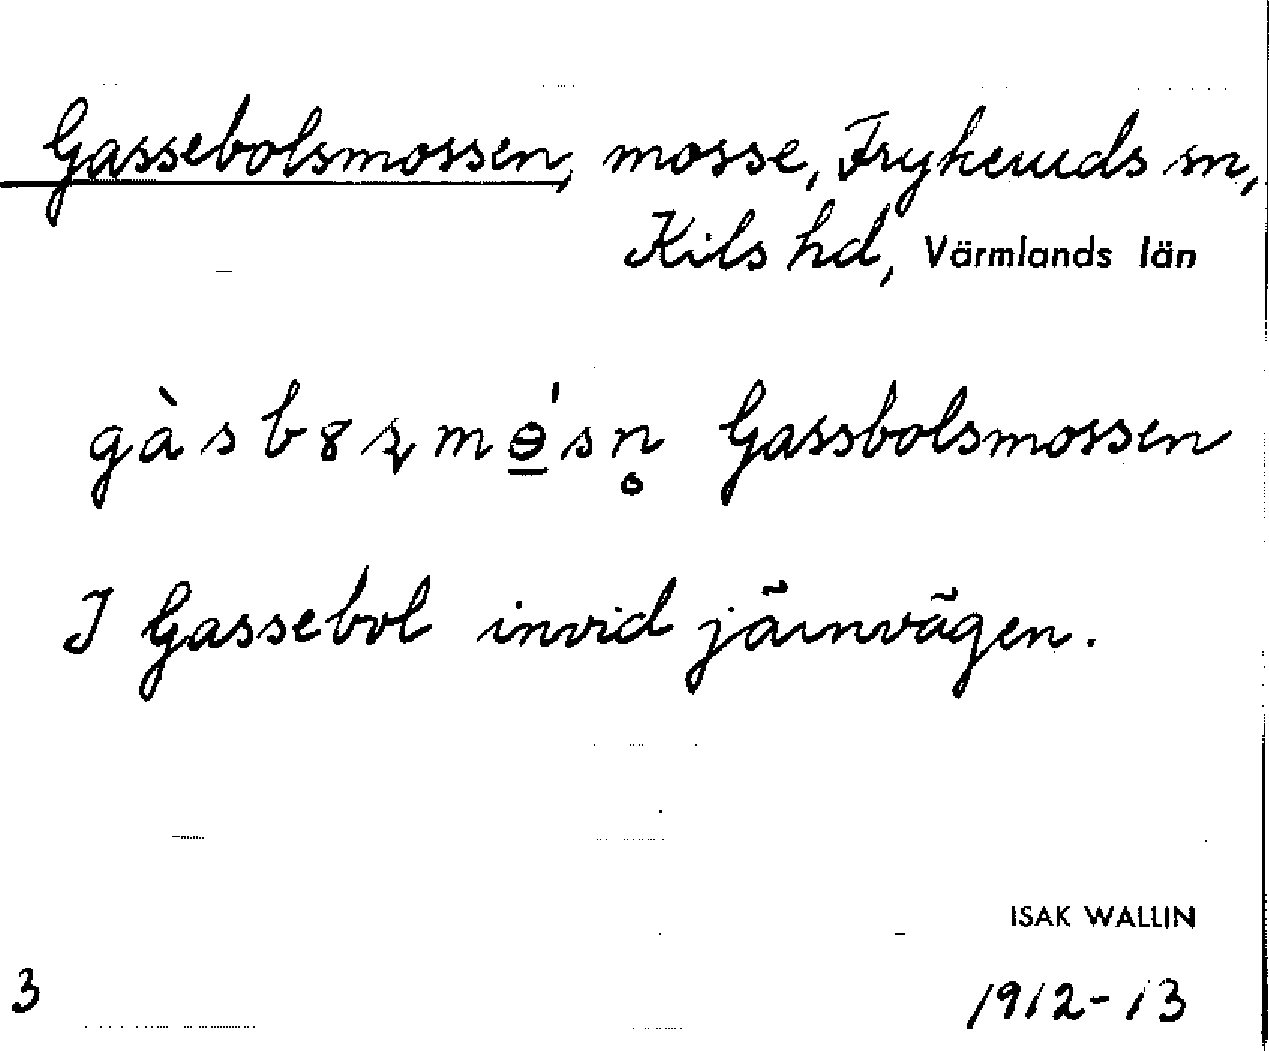 Gassebolsmossen, mosse, Frykeruds sn,
Kils hd, Värmlands län
gàsb8ʂmɵ̲́sn̥ Gassbolsmossen
I Gassebol invid järnvägen.
ISAK WALLIN
3 1912-13